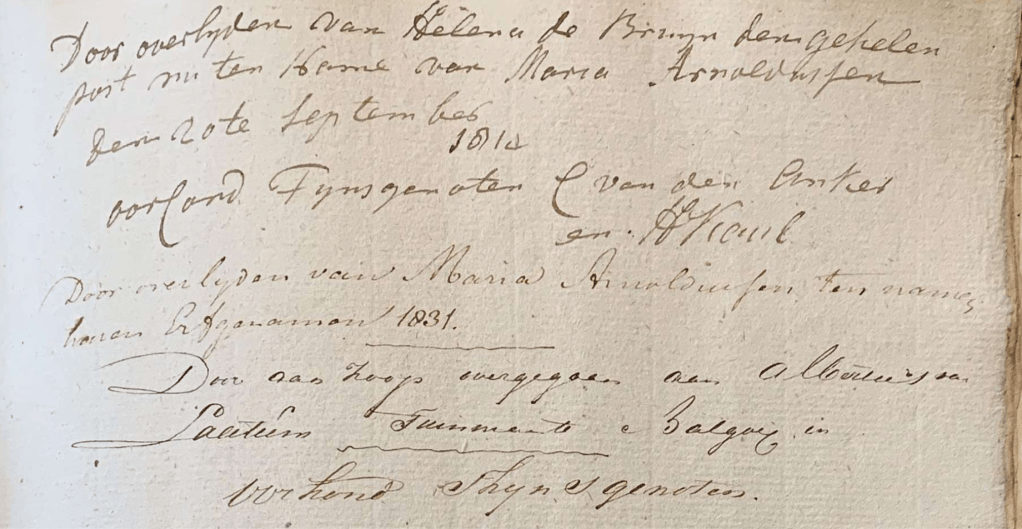 Door overlyden van Helena de Bruyn den gehelen
post nu ten Name van Maria Arnoldussen
den 20te September
1812
oorCond Tynsgenoten C van den Anker
en
Door overlyden van Maria Arnoldussen, ten name
haren Erfgenamen 1831.
Door aankoop overgegaan aan Albertus van
te Balgoij in
oorkond Thynsgenoten.